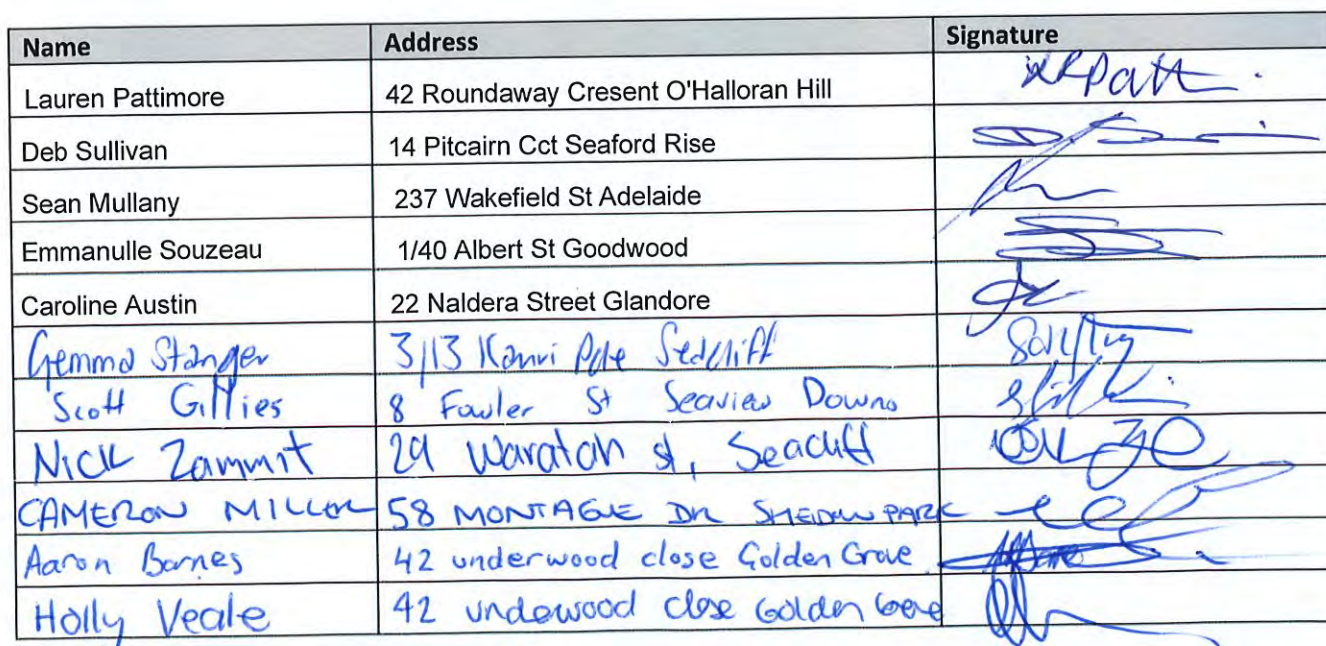 Name Address Signature
Lauren Pattimore 42 Roundaway Cresent O'Halloran Hill
Deb Sullivan 14 Pitcairn Cct Seaford Rise
Sean Mullany 237 Wakefield St Adelaide
Emmanulle Souzeau 1/40 Albert St Goodwood
Caroline Austin 22 Naldera Street Glandore
Gemma Stanger 3/13 Kauri Pde Seacliff
Scott Gillies 8 Fowler St Seaview Downs
Nick Zammit 29 Waratah st, Seacliff
CAMERON MILLER 58 MONTAGUE DR SHEIDOW PARK
Aaron Barnes 42 underwood close Golden Grove
Holly Veale 42 undewood close Golden Grove